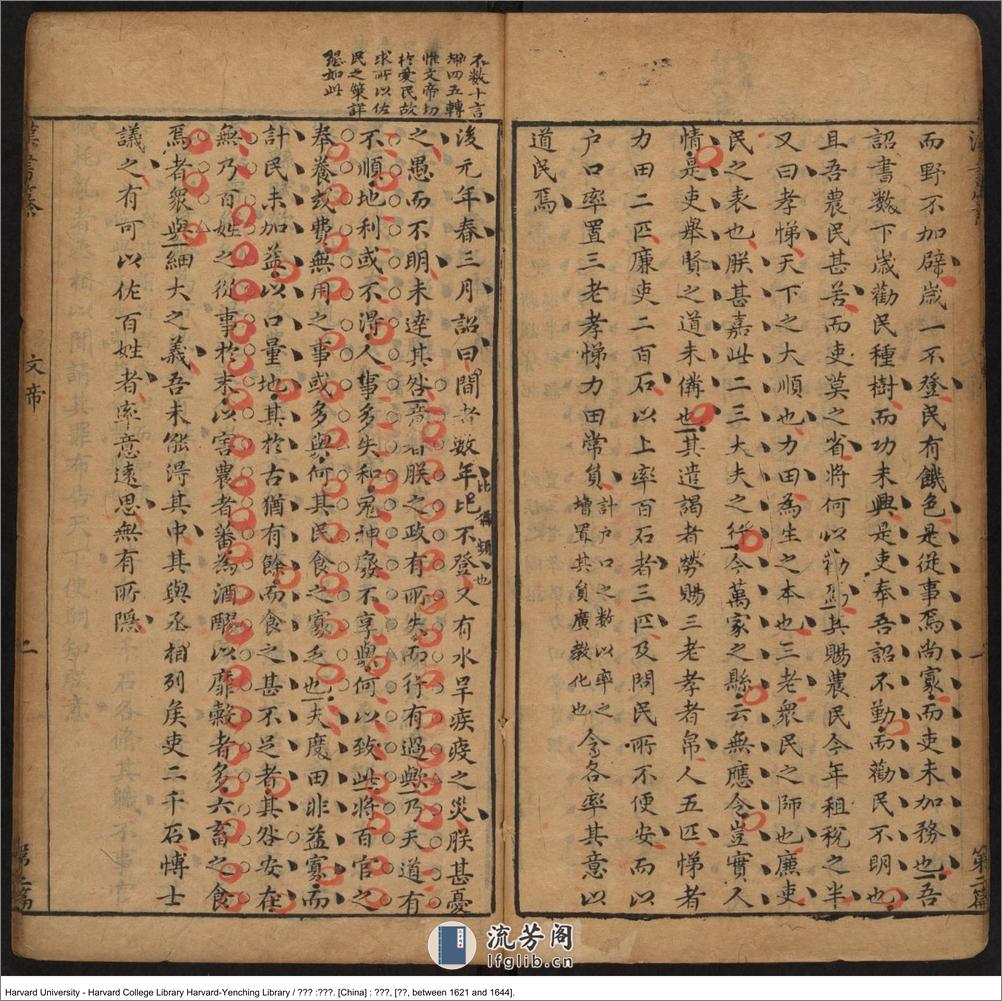 第二篇
而野不加辟歲一不登民有饑色是從事焉尚寡而吏未加務也吾
詔書數下歲勸民種樹而功未興是吏奉吾詔不勤而勸民不明也
且吾農民甚苦而吏莫之省將何以勸焉其賜農民今年租稅之半
又曰孝悌天下之大順也力田為生之本也三老衆民之師也廉吏
民之表也朕甚嘉此二三大夫之行今萬家之縣云無應令豈實人
情是吏舉賢之道未備也其遣謁者勞賜三老孝者帛人五匹悌者
力田二匹廉吏二百石以上率百石者三匹及問民所不便安而以
户口率置三老孝悌力田常員計户口之數以率之增置其員廣教化也令各率其意以
道民焉
不數十言
如四五轉
惟文帝切
於愛民故
求所以佐
民之策詳
懇如此
比猶頻也
後元年春三月詔曰間者數年比不登又有水旱疾疫之災朕甚憂
之愚而不明未達其咎意者朕之政有所失而行有過歟乃天道有
不順地利或不得人事多失和鬼神廢不享與何以致此將百官之
奉養或費無用之事或多與何其民食之寡乏也夫度田非益寡而
計民未加益以口量地其於古猶有餘而食之甚不足者其咎安在
無乃百姓之從事於末以害農者蕃為酒醪以靡穀者多六畜之食
焉者衆與細大之義吾未能得其中其與丞相列矦吏二千石博士
議之有可以佐百姓者率意遠思無有所隱
漢書纂
文帝
二
第二篇
流芳阁
lfglib.cn
Harvard University - Harvard College Library Harvard-Yenching Library / ??? :???. [China] : ???, [??, between 1621 and 1644].